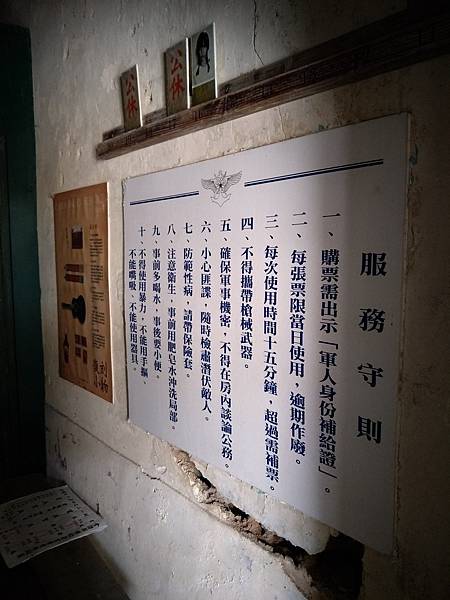 公休
公休
服務守則
一、購票需出示「軍人身份補給證」。
二、每張票限當日使用，逾期作廢。
三、每次使用時間十五分鐘，超過需補票。
四、不得攜帶槍械武器。
五、確保軍事機密，不得在房內談論公務。
六、小心匪諜，隨時檢肅潛伏敵人。
七、防範性病，請帶保險套。
八、注意衛生，事前用肥皂水沖洗局部。
九、事前多喝水，事後要小便。
十、不得使用暴力，不能用手摳，
不能嘴吸、不能使用器具。